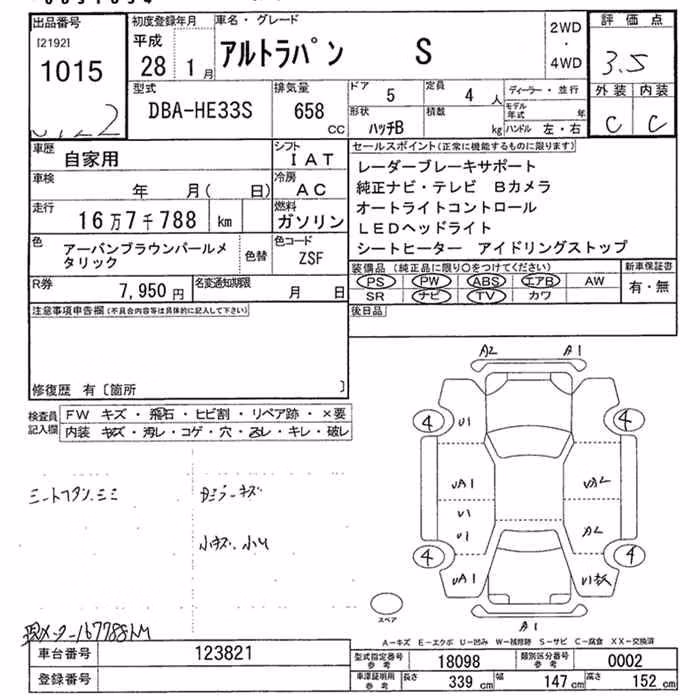 出品番号 初度登録年月 車名・グレード 2WD 評価点
[2192]
1015
平成 28年 1月 アルトラパン S ・ 3.5
4WD
型式 排気量 ドア 5 定員 4人 ディーラー・並行 外装 内装
DBA-HE33S 658 CC 形状 ハッチB 積載 kg モデル年式 年 C C
ハンドル 左・右
車歴 自家用 シフト IAT セールスポイント(正常に機能するものに限ります)
車検 年 月( 日) 冷房 AC レーダーブレーキサポート
純正ナビ・テレビ Bカメラ
走行 16万7千788 km 燃料 ガソリン オートライトコントロール
LEDヘッドライト
色 アーバンブラウンパールメタリック 色替 色コード ZSF シートヒーター アイドリングストップ
装備品(純正品に限り○をつけてください) 新車保証書
R券 7,950円 名変通知期限 月 日 PS PW ABS エアB AW 有・無
SR ナビ TV カワ
注意事項申告欄(不具合内容等は具体的に記入して下さい) 後日品
修復歴 有〔箇所 〕
A2 A1
検査員記入欄 FW キズ・飛石・ヒビ割・リペア跡・×要
内装 キズ・汚レ・コゲ・穴・スレ・キレ・破レ
4 U1 4
UA1 UA2
U1
U1 A2
4 4
UA1 U1板
A1
スペア
小キズ、小U
現メーター167788KM
A-キズ E-エクボ U-凹ミ W-補修跡 S-サビ C-腐食 XX-交換済
車台番号 123821 型式指定番号 参考 18098 類別区分番号 参考 0002
登録番号 車庫証明用 参考 長さ 339cm 幅 147cm 高さ 152cm